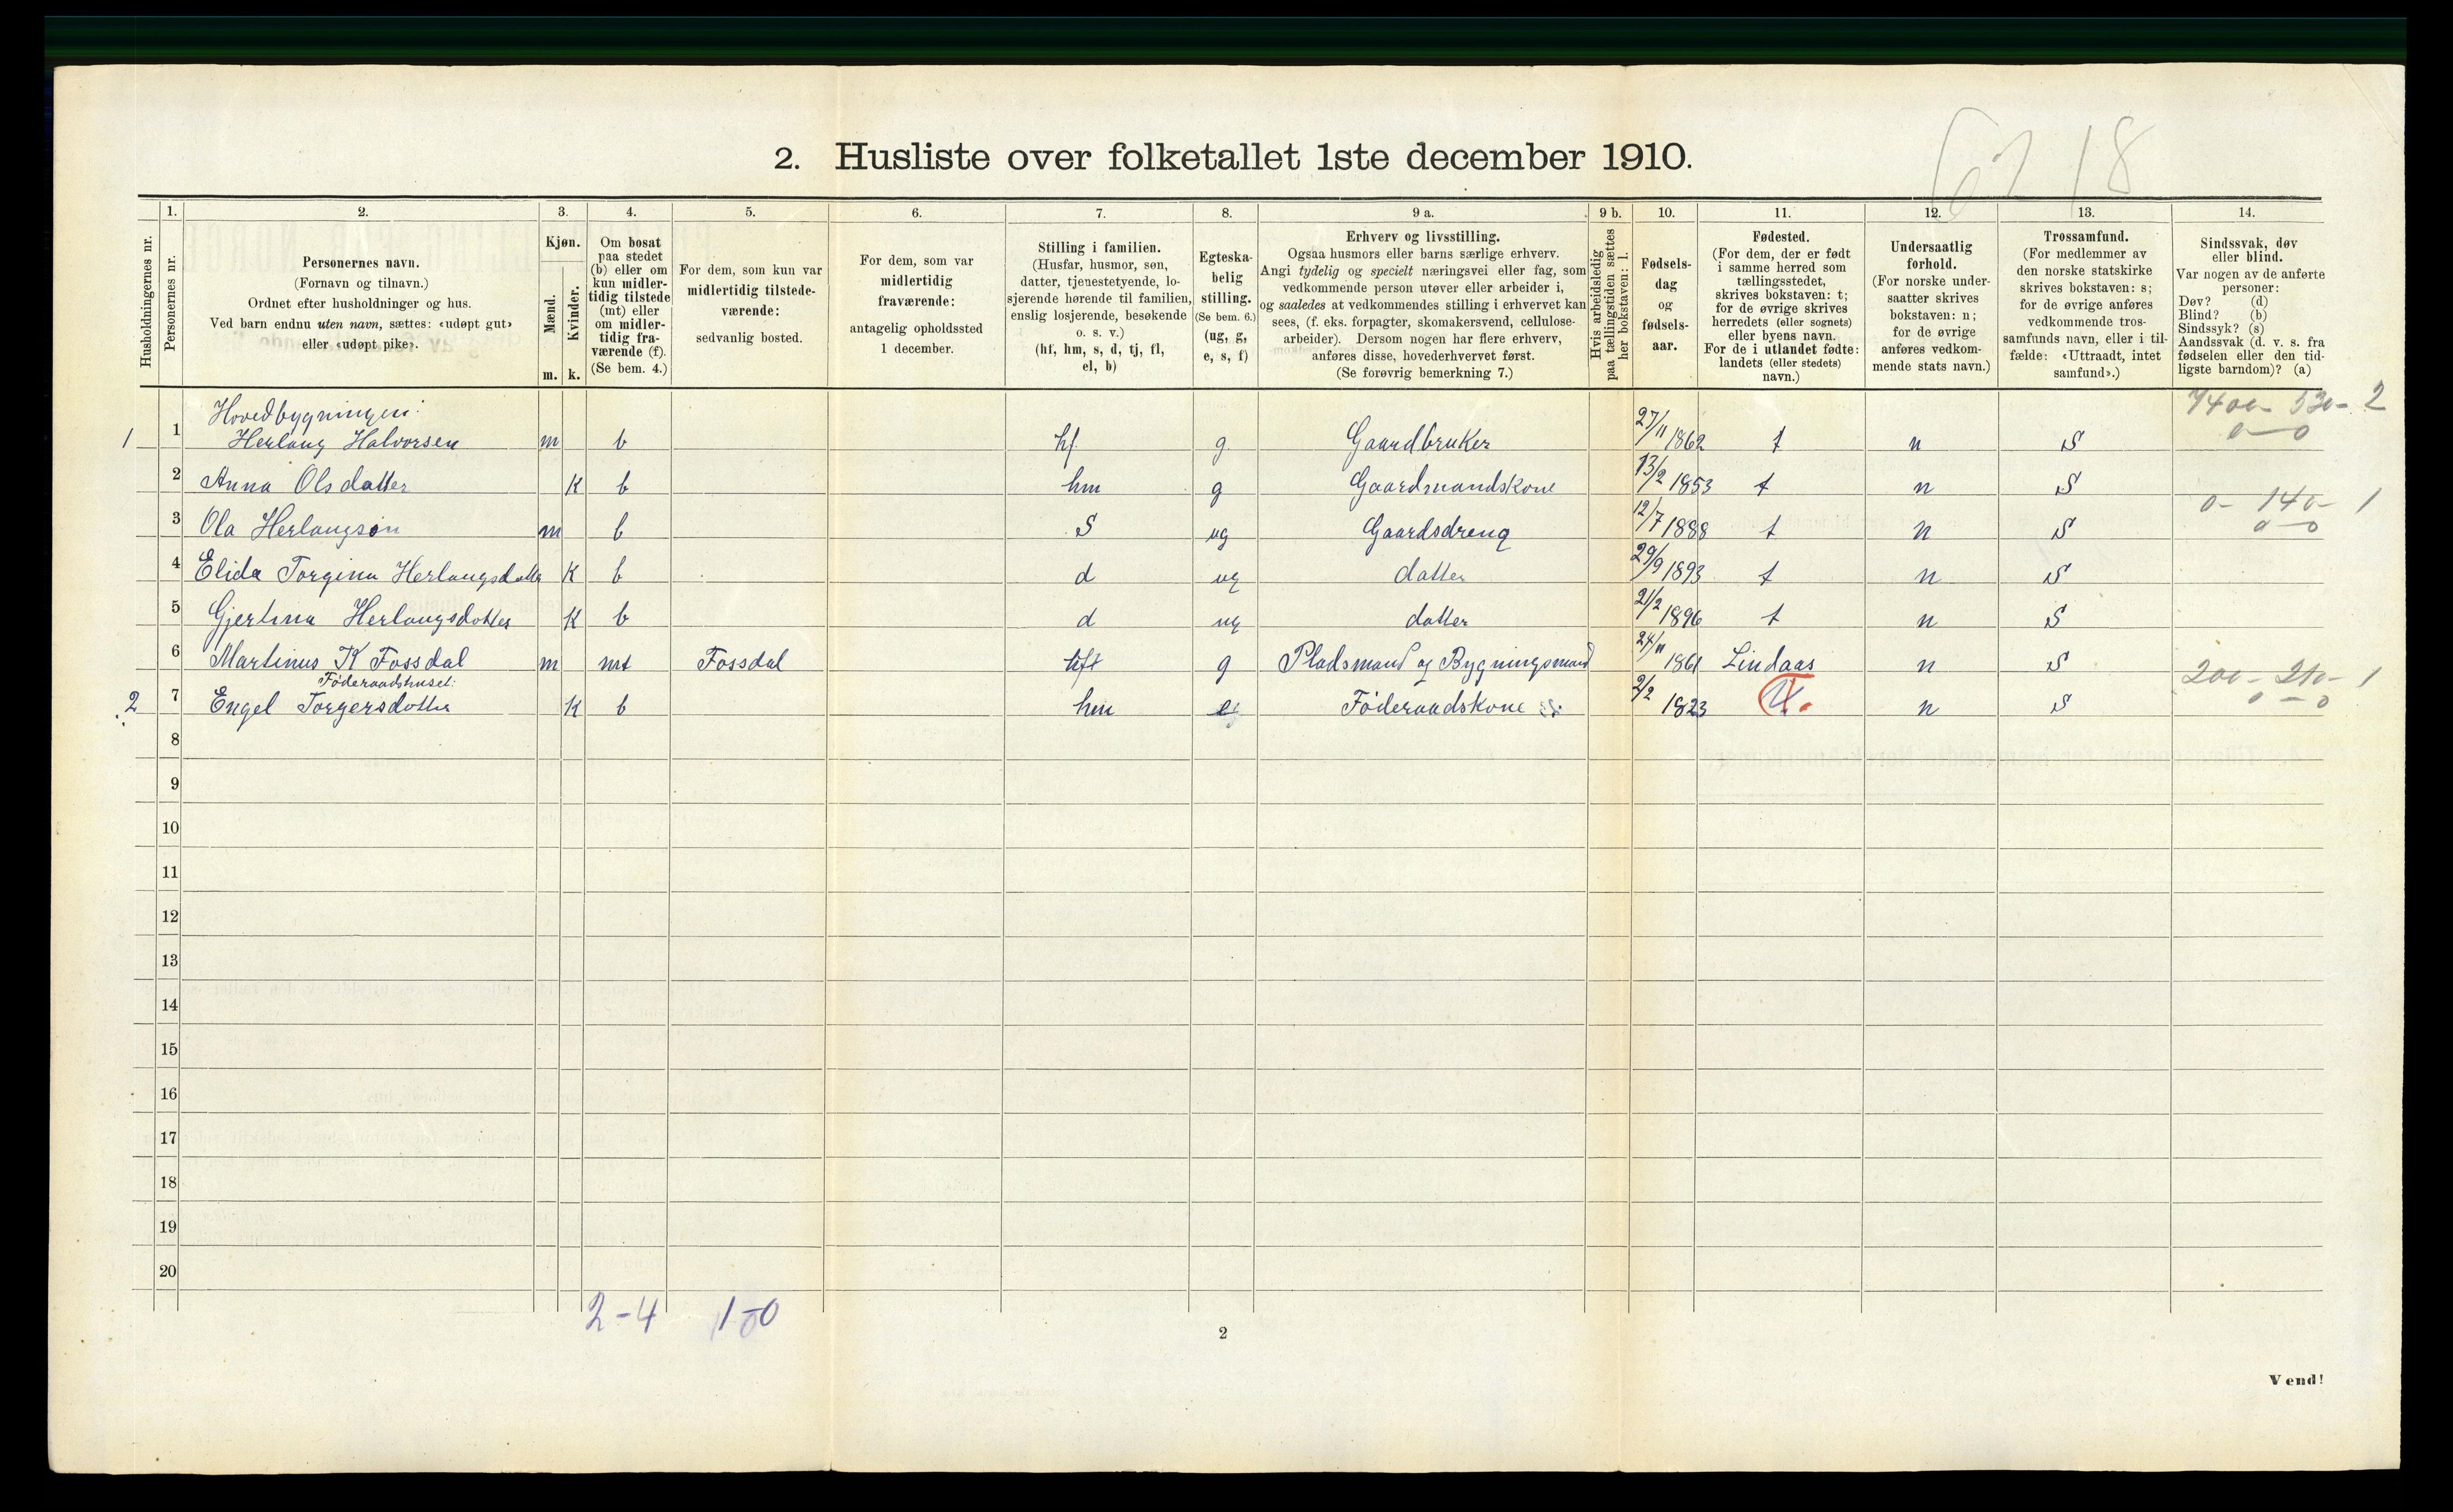 67 18
2. Husliste over folketallet 1ste december 1910.
Husholdningernes nr.
1.
Personernes nr.
2.
Personernes navn.
(Fornavn og tilnavn.)
Ordnet efter husholdninger og hus.
Ved barn endnu uten navn, sættes: «udøpt gut»
eller «udøpt pike».
3.
Kjøn.
Mænd.
m.
Kvinder.
k.
4.
Om bosat
paa stedet
(b) eller om
kun midler-
tidig tilstede
(mt) eller
om midler-
tidig fra-
værende (f).
(Se bem. 4.)
5.
For dem, som kun var
midlertidig tilstede-
værende:
sedvanlig bosted.
6.
For dem, som var
midlertidig
fraværende:
antagelig opholdssted
1 december.
7.
Stilling i familien.
(Husfar, husmor, søn,
datter, tjenestetyende, lo-
sjerende hørende til familien,
enslig losjerende, besøkende
o. s. v.)
(hf, hm, s, d, tj, fl,
el, b)
8.
Egteska-
belig
stilling.
(Se bem. 6.)
(ug, g,
e, s, f)
9 a.
Erhverv og livsstilling.
Ogsaa husmors eller barns særlige erhverv.
Angi tydelig og specielt næringsvei eller fag, som
vedkommende person utøver eller arbeider i,
og saaledes at vedkommendes stilling i erhvervet kan
sees, (f. eks. forpagter, skomakersvend, cellulose-
arbeider). Dersom nogen har flere erhverv,
anføres disse, hovederhvervet først.
(Se forøvrig bemerkning 7.)
9 b.
Hvis arbeidsledig
paa tællingstiden sættes
her bokstaven: l.
10.
Fødsels-
dag
og
fødsels-
aar.
11.
Fødested.
(For dem, der er født
i samme herred som
tællingsstedet,
skrives bokstaven: t;
for de øvrige skrives
herredets (eller sognets)
eller byens navn.
For de i utlandet fødte:
landets (eller stedets)
navn.)
12.
Undersaatlig
forhold.
(For norske under-
saatter skrives
bokstaven: n;
for de øvrige
anføres vedkom-
mende stats navn.)
13.
Trossamfund.
(For medlemmer av
den norske statskirke
skrives bokstaven: s;
for de øvrige anføres
vedkommende tros-
samfunds navn, eller i til-
fælde: «Uttraadt, intet
samfund».)
14.
Sindssvak, døv
eller blind.
Var nogen av de anførte
personer:
Døv? (d)
Blind? (b)
Sindssyk? (s)
Aandssvak (d. v. s. fra
fødselen eller den tid-
ligste barndom)? (a)
Hovedbygningen:
1 1 Herlaug Halvorsen m b hf g Gaardbruker 27/11 1862 t n S 7400- 530- 2
0-0
2 Anna Olsdatter K b hm g Gaardmandskone 13/2 1853 t n S
3 Ola Herlaugson m b S ug Gaardsdreng 12/7 1888 t n S 0- 140- 1
0-0
4 Elida Torgina Herlaugsdatter K b d ug datter 29/9 1893 t n S
5 Gjertina Herlaugsdatter K b d ug datter 21/2 1896 t n S
6 Martinus K Fossdal m mt Fossdal g Pladsmand og Bygningsmand 24/11 1861 Lindaas n S
Föderaadshuset:
2 7 Engel Torgersdatter K b hm e Föderaadskone 2/2 1823 n S 200- 210- 1
0-0
8
9
10
11
12
13
14
15
16
17
18
19
20
2-4 1-0
2
Vend!